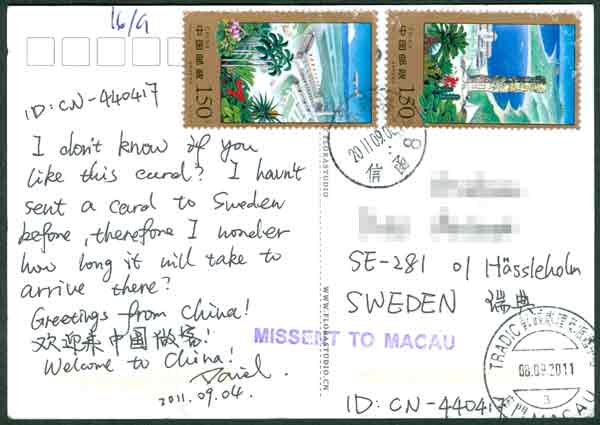 16/9
中国邮政
150
中国邮政
150
ID: CN-440417
I don't know if you
like this card? I havn't
sent a card to Sweden
before, therefore I wonder
how long it will take to
arrive there?
Greetings from China!
欢迎来中国做客!
Welcome to China!
2011.09.04.
FLORASTUDIO
WWW.FLORASTUDIO.CN
2011.09.0
信
MISSENT TO MACAU
SE-281 01 Hässleholm
SWEDEN 瑞典
08.09.2011
3
MACAU
ID: CN-440417